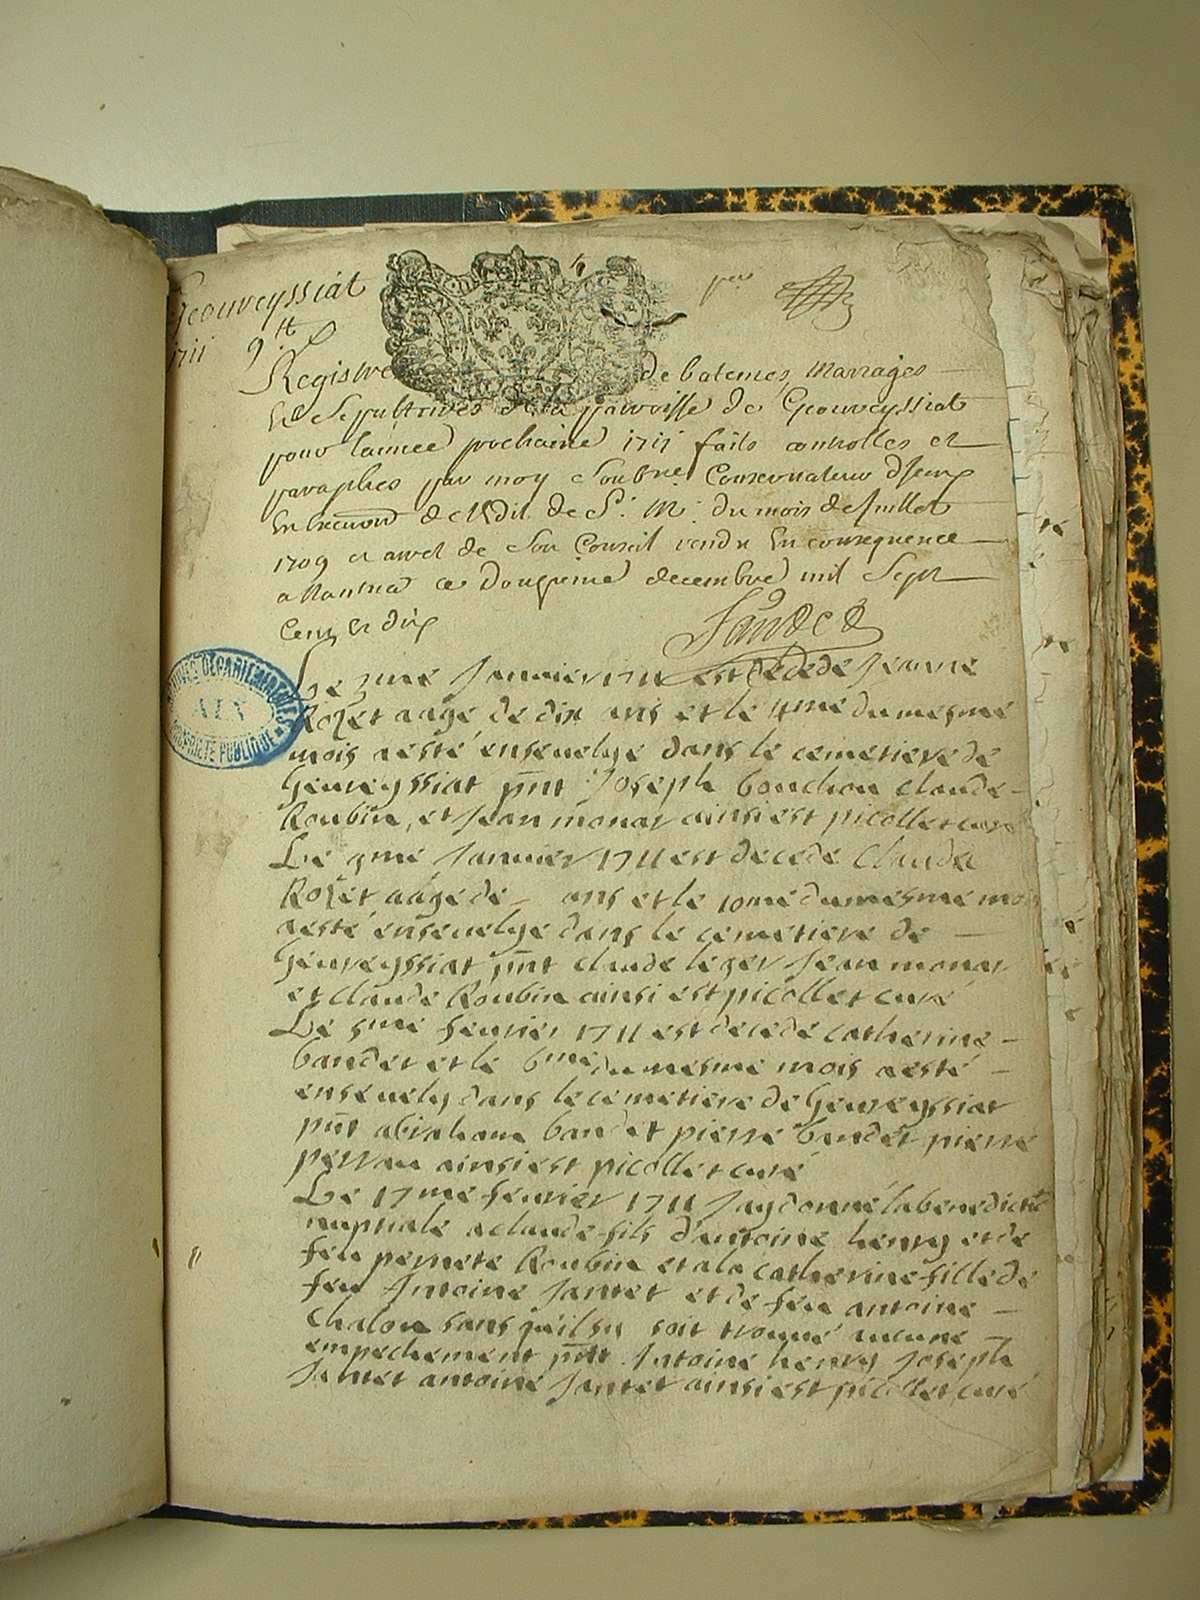 Geouveyssiat
1711
9 tt
per
Registre de batemes, Mariages
et Sepultures de la parroisse de Geouveyssiat
pour lannee prochaine 1711 faits controlles et
paraphes par moy Soubne Conservateur
En de l'Edit de S. M. du mois de Juillet
1709 et arret de Son Conseil rendu En consequence
a Nantua ce Douzieme decembre mil Sept
Cent et dix
Le 3me Janvier 1711 est decede Jeanne
Rozet aage de dix ans et le 4me du mesme
mois a esté ensevelye dans le cemetiere de
Geuveyssiat pnt Joseph bouchou claude
Roubin, et Jean monar ainsi est picollet curé
Le 9me Janvier 1711 est decede Claude
Rozet aage de ans et le 10me du mesme mois
a esté ensevelye dans le cemetiere de
Geuveyssiat pnt claude leger Jean monar
et claude Roubin ainsi est picollet curé
Le 5me fevrier 1711 est decede catherine
baudet et le 6me du mesme mois a esté
ensevely dans le cemetiere de Geuveyssiat
pnt abraham baudet pierre baudet pierre
perrau ainsi est picollet curé
Le 17me fevrier 1711 Jay donné la benedict
nuptiale a claude fils d'antoine henry et de
feu pernete Roubin et a la catherine fille de
feu Antoine Jantet et de feu antoine
Chalon sans quil sy soit trouvé aucune
empechement pnt Antoine henry Joseph
Jantet antoine Jantet ainsi est picollet curé
ARCHIVES DÉPARTEMENTALES
AIN
PROPRIÉTÉ PUBLIQUE